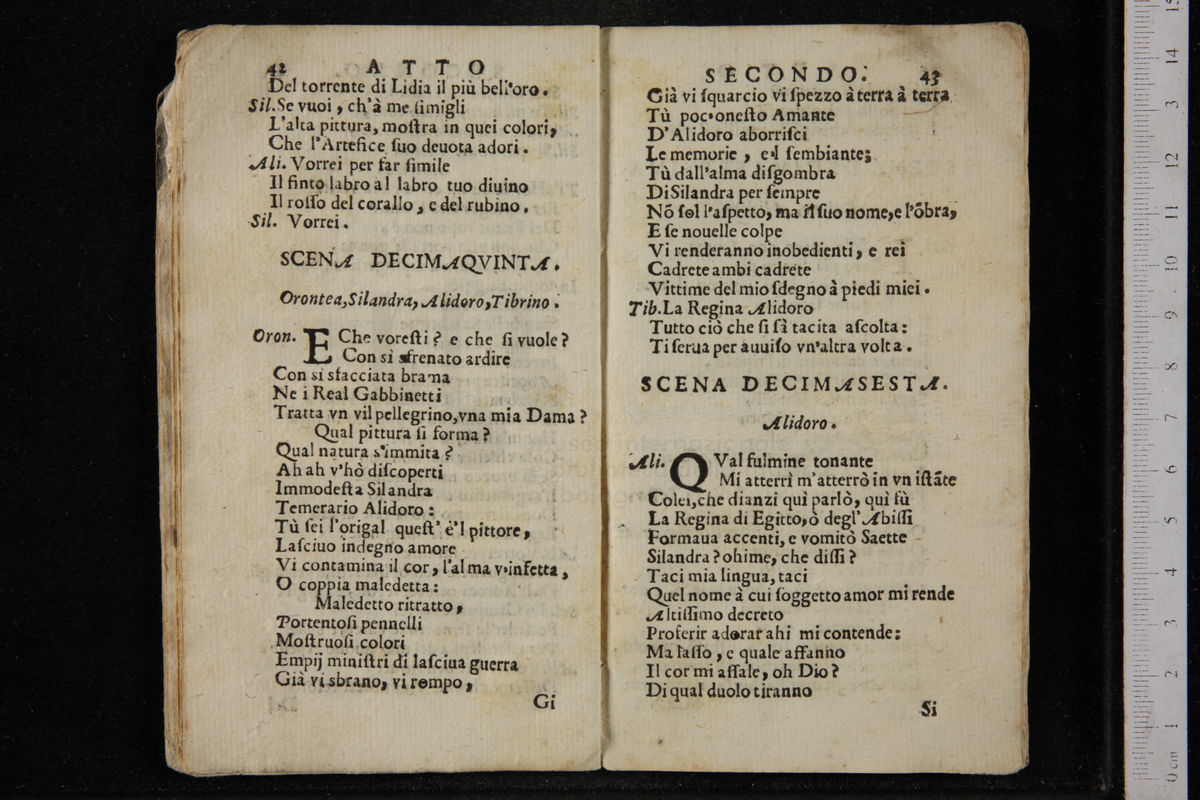 42 ATTO
Del torrente di Lidia il più bell'oro.
Sil. Se vuoi, ch'à me ſimigli
L'alta pittura, moſtra in quei colori,
Che l'Artefice ſuo deuota adori.
Ali. Vorrei per far ſimile
Il finto labro al labro tuo diuino
Il roſſo del corallo, e del rubino.
Sil. Vorrei.
SCENA DECIMAQVINTA.
Orontea, Silandra, Alidoro, Tibrino.
Oron. E Che voreſti? e che ſi vuole?
Con sì sfrenato ardire
Con sì sfacciata brama
Ne i Real Gabbinetti
Tratta vn vil pellegrino, vna mia Dama?
Qual pittura ſi forma?
Qual natura s'immita?
Ah ah v'hò diſcoperti
Immodeſta Silandra
Temerario Alidoro:
Tù ſei l'origal queſt' è'l pittore,
Laſciuo indegno amore
Vi contamina il cor, l'alma v'infetta,
O coppia maledetta:
Maledetto ritratto,
Portentoſi pennelli
Moſtruoſi colori
Empij miniſtri di laſciua guerra
Già vi sbrano, vi rompo,
Gi
SECONDO. 43
Già vi ſquarcio vi ſpezzo à terra à terra
Tù poc'oneſto Amante
D'Alidoro aborriſci
Le memorie, e'l ſembiante;
Tù dall'alma diſgombra
Di Silandra per ſempre
Nõ ſol l'aſpetto, ma il ſuo nome, e l'õbra,
E ſe nouelle colpe
Vi renderanno inobedienti, e rei
Cadrete ambi cadrete
Vittime del mio ſdegno à piedi miei.
Tib. La Regina Alidoro
Tutto ciò che ſi fà tacita aſcolta:
Ti ſerua per auuiſo vn'altra volta.
SCENA DECIMASESTA.
Alidoro.
Ali. QVal fulmine tonante
Mi atterrì m'atterrò in vn iſtãte
Colei, che dianzi quì parlò, quì fù
La Regina di Egitto, ò degl'Abiſſi
Formaua accenti, e vomitò Saette
Silandra? ohime, che diſſi?
Taci mia lingua, taci
Quel nome à cui ſoggetto amor mi rende
Altiſſimo decreto
Proferir adorar ahi mi contende:
Ma laſſo, e quale affanno
Il cor mi aſſale, oh Dio?
Di qual duolo tiranno
Si